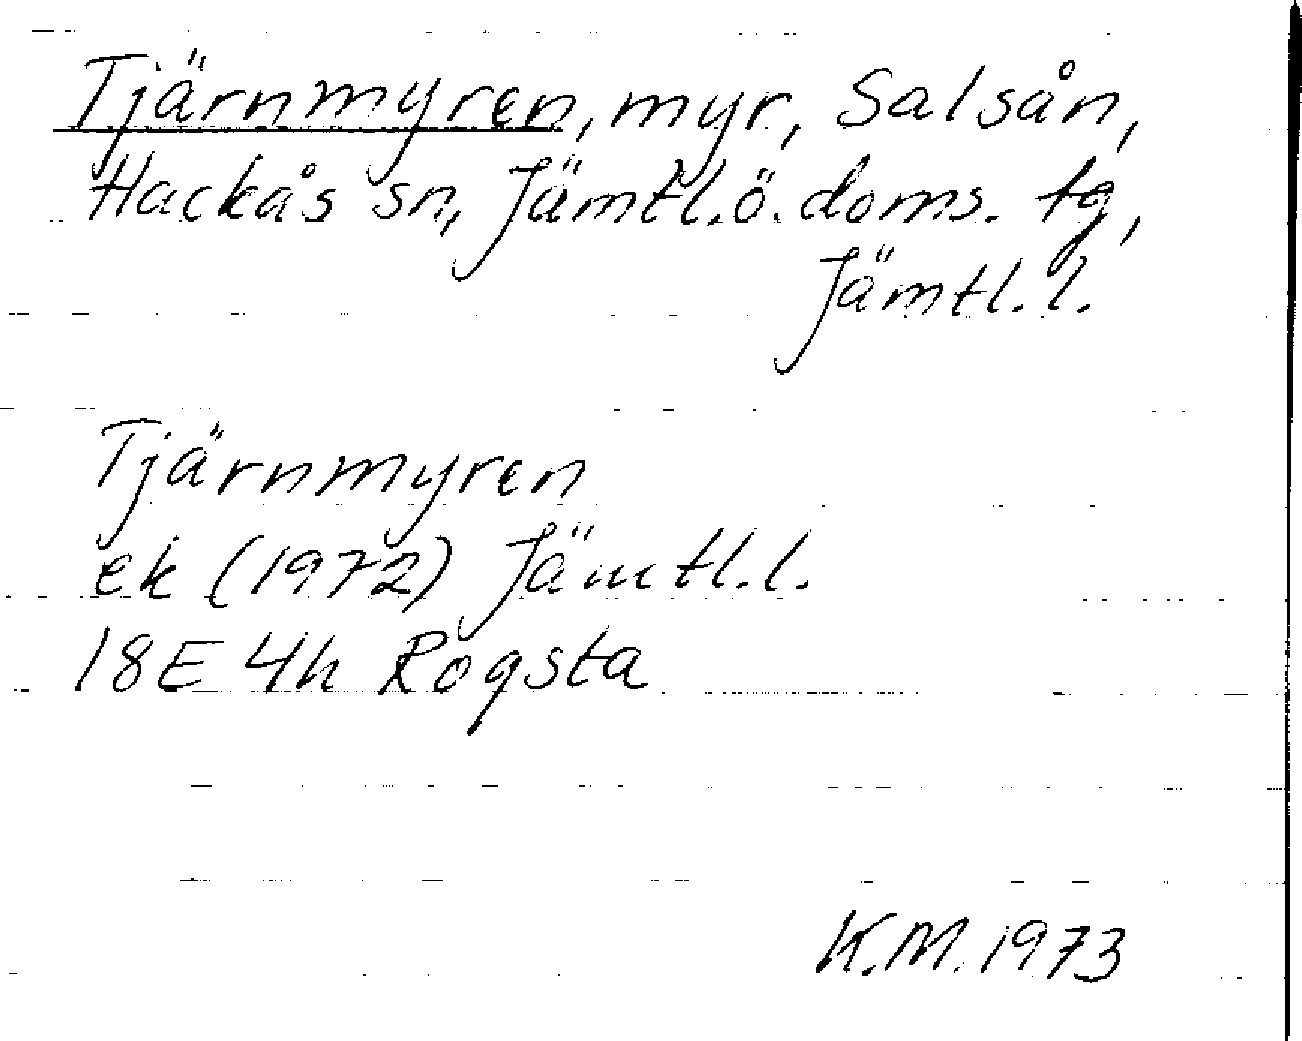 Tjärnmyren, myr, Salsån,
Hackås sn, Jämtl.ö. doms. tg,
Jämtl. l.
Tjärnmyren
ek (1972) Jämtl. l.
18E 4h Rogsta
K.M. 1973